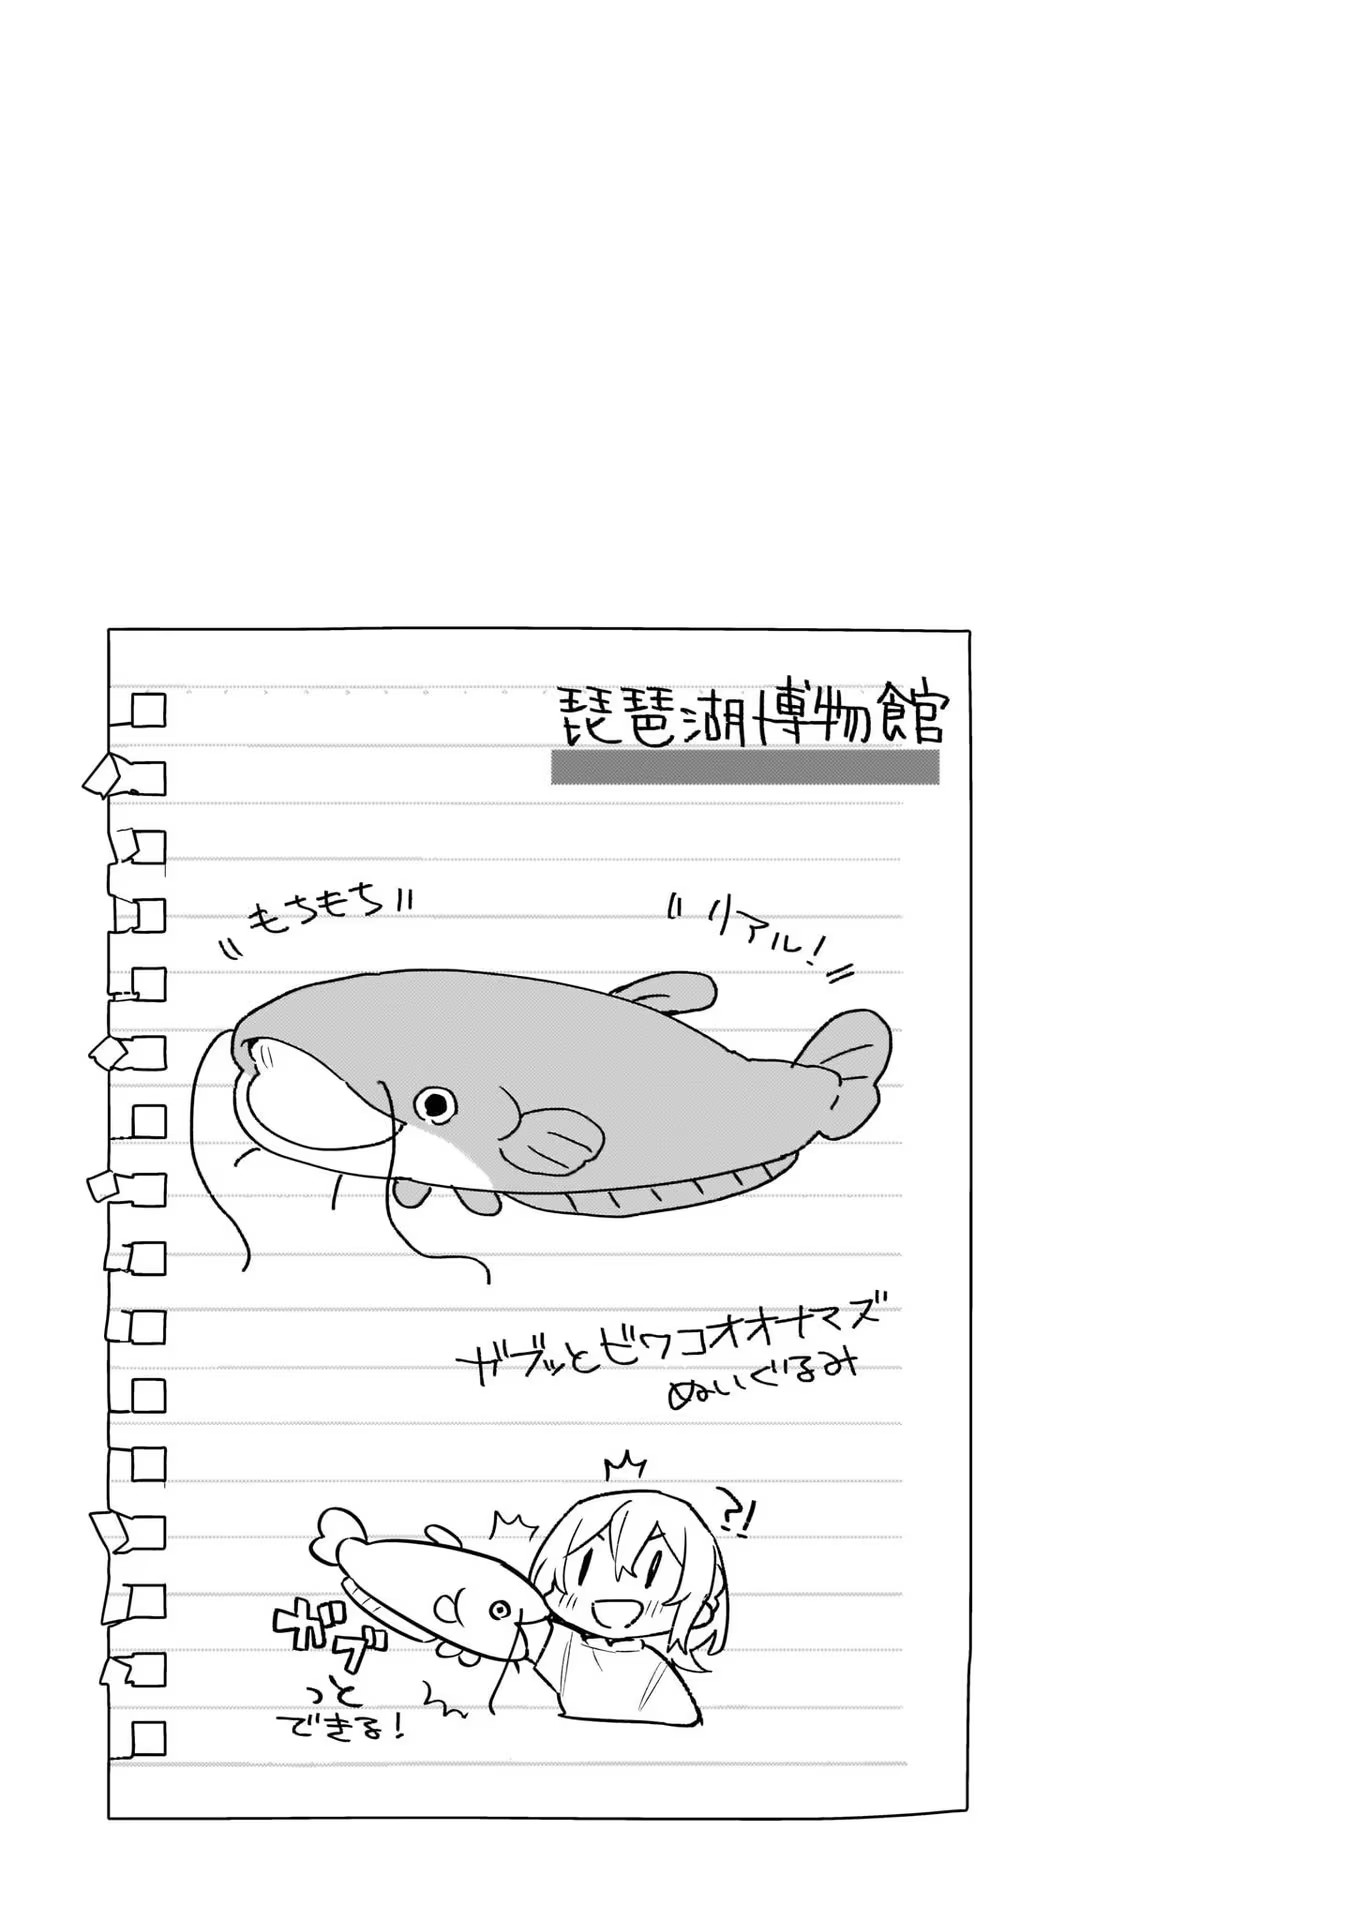 琵琶湖博物館
もちもち
リアル!
ガブッとビワコオオナマズ
ぬいぐるみ
?!
ガブ
っと
できる!